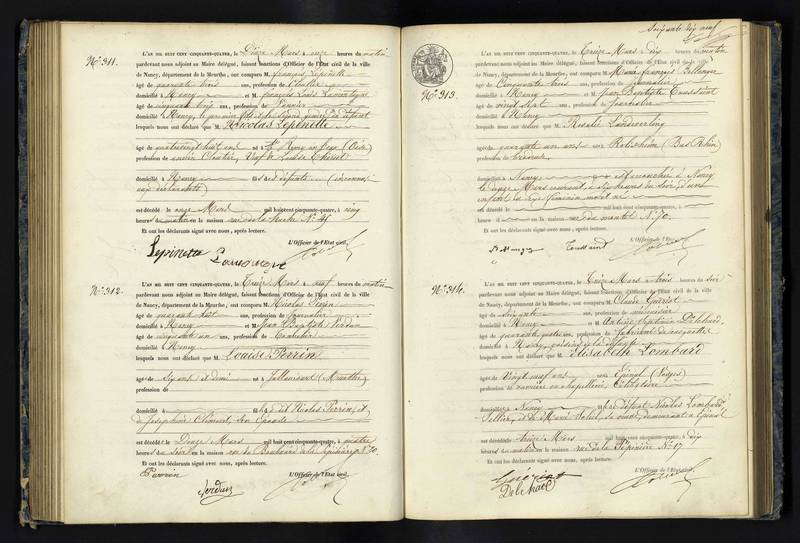 N.° 311.
L'AN MIL HUIT CENT CINQUANTE-QUATRE, le Douze Mars à onze heures du matin
pardevant nous adjoint au Maire délégué, faisant fonctions d'Officier de l'Etat civil de la ville
de Nancy, département de la Meurthe, ont comparu M. françois Lepinette
âgé de quarante trois ans, profession de Cloutier
domicilié à Nancy et M. françois Louis
âgé de cinquante trois ans, profession de Vannier
domicilié à Nancy, le premier fils et le second gendre du défunt
lesquels nous ont déclaré que M. Nicolas Lepinette
âgé de quatrevingt huit ans né à St. Remy (Oise)
profession de ancien Cloutier, Veuf de Louise
domicilié à Nancy fils de défunts (inconnus
aux déclarants)
est décédé le onze Mars mil huit cent cinquante-quatre, à cinq
heures du matin en la maison rue N.° 45
Et ont les déclarants signé avec nous, après lecture.
L'Officier de l'Etat civil,
Lepinette
N.° 312.
L'AN MIL HUIT CENT CINQUANTE-QUATRE, le Treize Mars à neuf heures du matin
pardevant nous adjoint au Maire délégué, faisant fonctions d'Officier de l'Etat civil de la ville
de Nancy, département de la Meurthe, ont comparu M. Nicolas Perrin
âgé de quarante huit ans, profession de Journalier
domicilié à Nancy et M. Jean Baptiste Verdun
âgé de cinquante un ans, profession de
domicilié à Nancy
lesquels nous ont déclaré que M. Louise Perrin
âgé de six ans et demi né à (Meurthe)
profession de
domicilié à fille de dit Nicolas Perrin, et
de Josephine Clément, son épouse
est décédé le Douze Mars mil huit cent cinquante-quatre, à quatre
heures du soir en la maison rue du de la Pépinière N.°
Et ont les déclarants signé avec nous, après lecture.
L'Officier de l'Etat civil,
Perrin
Verdun
Soixante dix neuf
N.° 313.
L'AN MIL HUIT CENT CINQUANTE-QUATRE, le Treize Mars à dix heures du matin
pardevant nous adjoint au Maire délégué, faisant fonctions d'Officier de l'Etat civil de la ville
de Nancy, département de la Meurthe, ont comparu M. françois
âgé de Cinquante trois ans, profession de Journalier
domicilié à Nancy et M. Jean Baptiste Toussaint
âgé de vingt sept ans, profession de Journalier
domicilié à Nancy
lesquels nous ont déclaré que M. Rosalie
âgé de quarante un ans né à (Bas Rhin)
profession de
domicilié à Nancy, est accouchée à Nancy
le douze Mars courant, à dix heures du soir d'un
enfant du sexe féminin mort né
est décédé le mil huit cent cinquante-quatre, à
heures d en la maison rue N.° 70.
Et ont les déclarants signé avec nous, après lecture.
L'Officier de l'Etat civil,
Toussaint
N.° 314.
L'AN MIL HUIT CENT CINQUANTE-QUATRE, le Treize Mars à trois heures du soir
pardevant nous adjoint au Maire délégué, faisant fonctions d'Officier de l'Etat civil de la ville
de Nancy, département de la Meurthe, ont comparu M. Claude Guériot
âgé de soixante ans, profession de menuisier
domicilié à Nancy et M. Antoine
âgé de quarante quatre ans, profession de fabricant de casquettes
domicilié à Nancy, de la défunte
lesquels nous ont déclaré que M. Elisabeth Lombard
âgé de vingt neuf ans née à Epinal (Vosges)
profession de ouvrière en chapellerie Célibataire
domicilié à Nancy fille de défunt Nicolas Lombard
Sellier, et de Marie sa veuve, demeurant à Epinal
est décédé le treize Mars mil huit cent cinquante-quatre, à dix
heures du matin en la maison rue de la Pépinière N.° 17
Et ont les déclarants signé avec nous, après lecture.
L'Officier de l'Etat civil,
Guériot